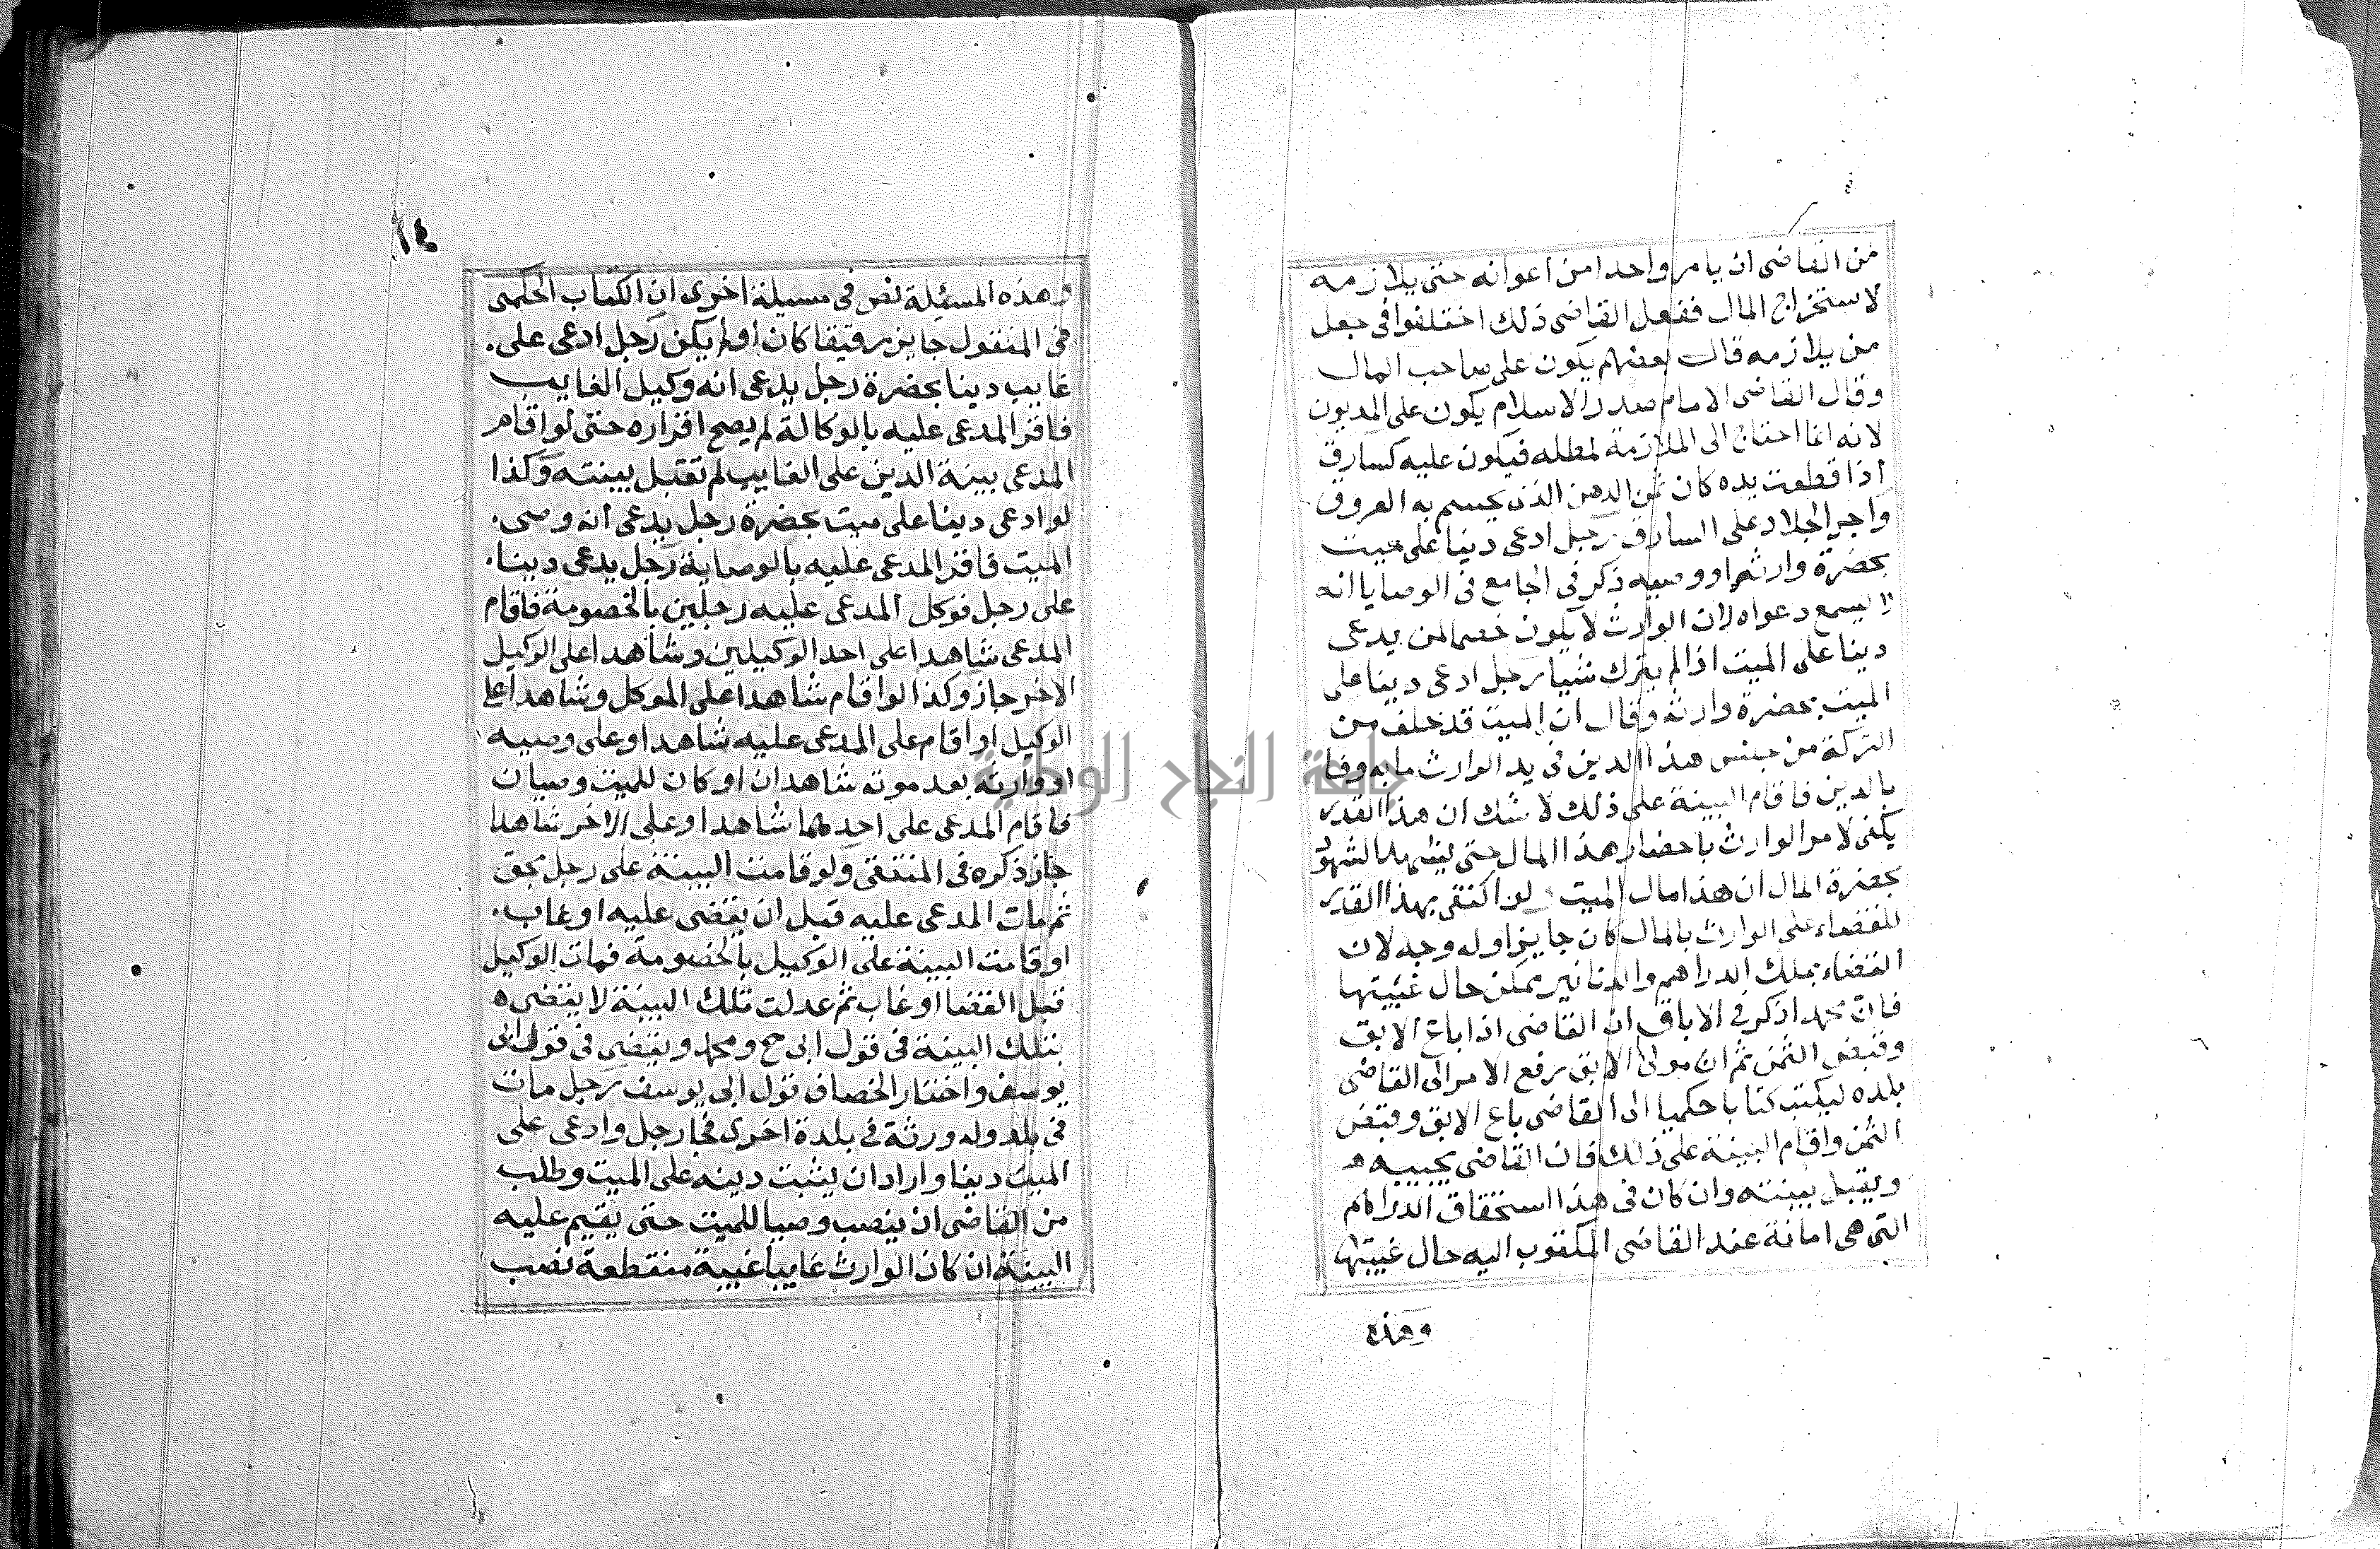 من القاضى ان يامر واحدا من اعوانه حتى يلازمه
لاستخراج المال ففعل القاضى ذلك اختلفوا فى جعل
من يلازمه قال بعضهم يكون على صاحب المال
وقال القاضى الامام صدر الاسلام يكون على المديون
لانه انما احتاج الى الملازمة لمطله فيكون عليه كسارق
اذا قطعت يده كان ثمن الدهن الذى يحسم به العروق
واجر الجلاد على السارق رجل ادعى دينا على ميت
بحضرة وارثه او وصيه ذكر فى الجامع فى الوصايا انه
لا يسمع دعواه لان الوارث لا يكون خصما لمن يدعى
دينا على الميت اذا لم يترك شيا رجل ادعى دينا على
الميت بحضرة وارثه وقال ان الميت قد خلف من
التركة من جنس هذا الدين فى يد الوارث ما به وفا
بالدين فاقام البينة على ذلك لا شك ان هذا القدر
يكفى لامر الوارث باحضار هذا المال حتى يشهد الشهود
بحضرة المال ان هذا مال الميت لو اكتفى بهذا القدر
للقضاء على الوارث بالمال كان جايزا وله وجه لان
القضاء بملك الدراهم والدنانير ممكن حال غيبتها
فان محمدا ذكر فى الاباق ان القاضى اذا باع الابق
وقبض الثمن ثم ان مولى الابق رفع الامر الى القاضى
بلده ليكتب كتابا حكميا الى القاضى باع الابق وقبض
الثمن واقام البينة على ذلك فان القاضى يجيبه
ويقبل بينته وان كان فى هذا استحقاق الدراهم
التى هى امانة عند القاضى المكتوب اليه حال غيبتها
وهذه
١٤
وهذه المسئلة نص فى مسيلة اخرى ان الكتاب الحكمى
فى المنقول جايز رقيقا كان اولم يكن رجل ادعى على
غايب دينا بحضرة رجل يدعى انه وكيل الغايب
فاقر المدعى عليه بالوكالة لم يصح اقراره حتى لو اقام
المدعى بينة الدين على الغايب لم تقبل بينته وكذا
لو ادعى دينا على ميت بحضرة رجل يدعى انه وصى
الميت فاقر المدعى عليه بالوصاية رجل يدعى دينا
على رجل فوكل المدعى عليه رجلين بالخصومة فاقام
المدعى شاهدا على احد الوكيلين وشاهدا على الوكيل
الاخر جاز وكذا لو اقام شاهدا على الموكل وشاهدا على
الوكيل او اقام على المدعى عليه شاهدا وعلى وصيه
او وارثه بعد موته شاهدان او كان للميت وصيان
فاقام المدعى على احدهما شاهدا وعلى الاخر شاهدا
جاز ذكره فى المنتقى ولو قامت البينة على رجل بحق
ثم مات المدعى عليه قبل ان يقضى عليه او غاب
او قامت البينة على الوكيل بالخصومة فمات الوكيل
قبل القضا او غاب ثم عدلت تلك البينة لا يقضى
بتلك البينة فى قول ابى ح ومحمد ويقضى فى قول ابى
يوسف واختار الخصاف قول ابى يوسف رجل مات
فى بلد وله ورثة فى بلدة اخرى فجا رجل وادعى على
الميت دينا واراد ان يثبت دينه على الميت وطلب
من القاضى ان ينصب وصيا للميت حتى يقيم عليه
البينة ان كان الوارث غايبا غيبة منقطعة نصب
جامعة النجاح الوطنية